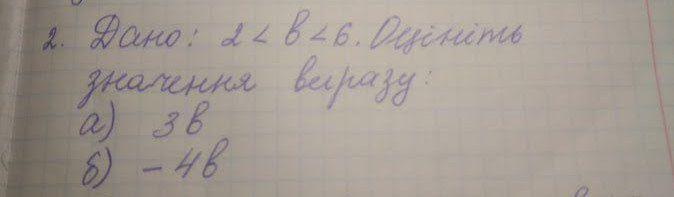 2. Дано: 2 < b < 6. Оцініть
значення виразу:
а) 3b
б) – 4b